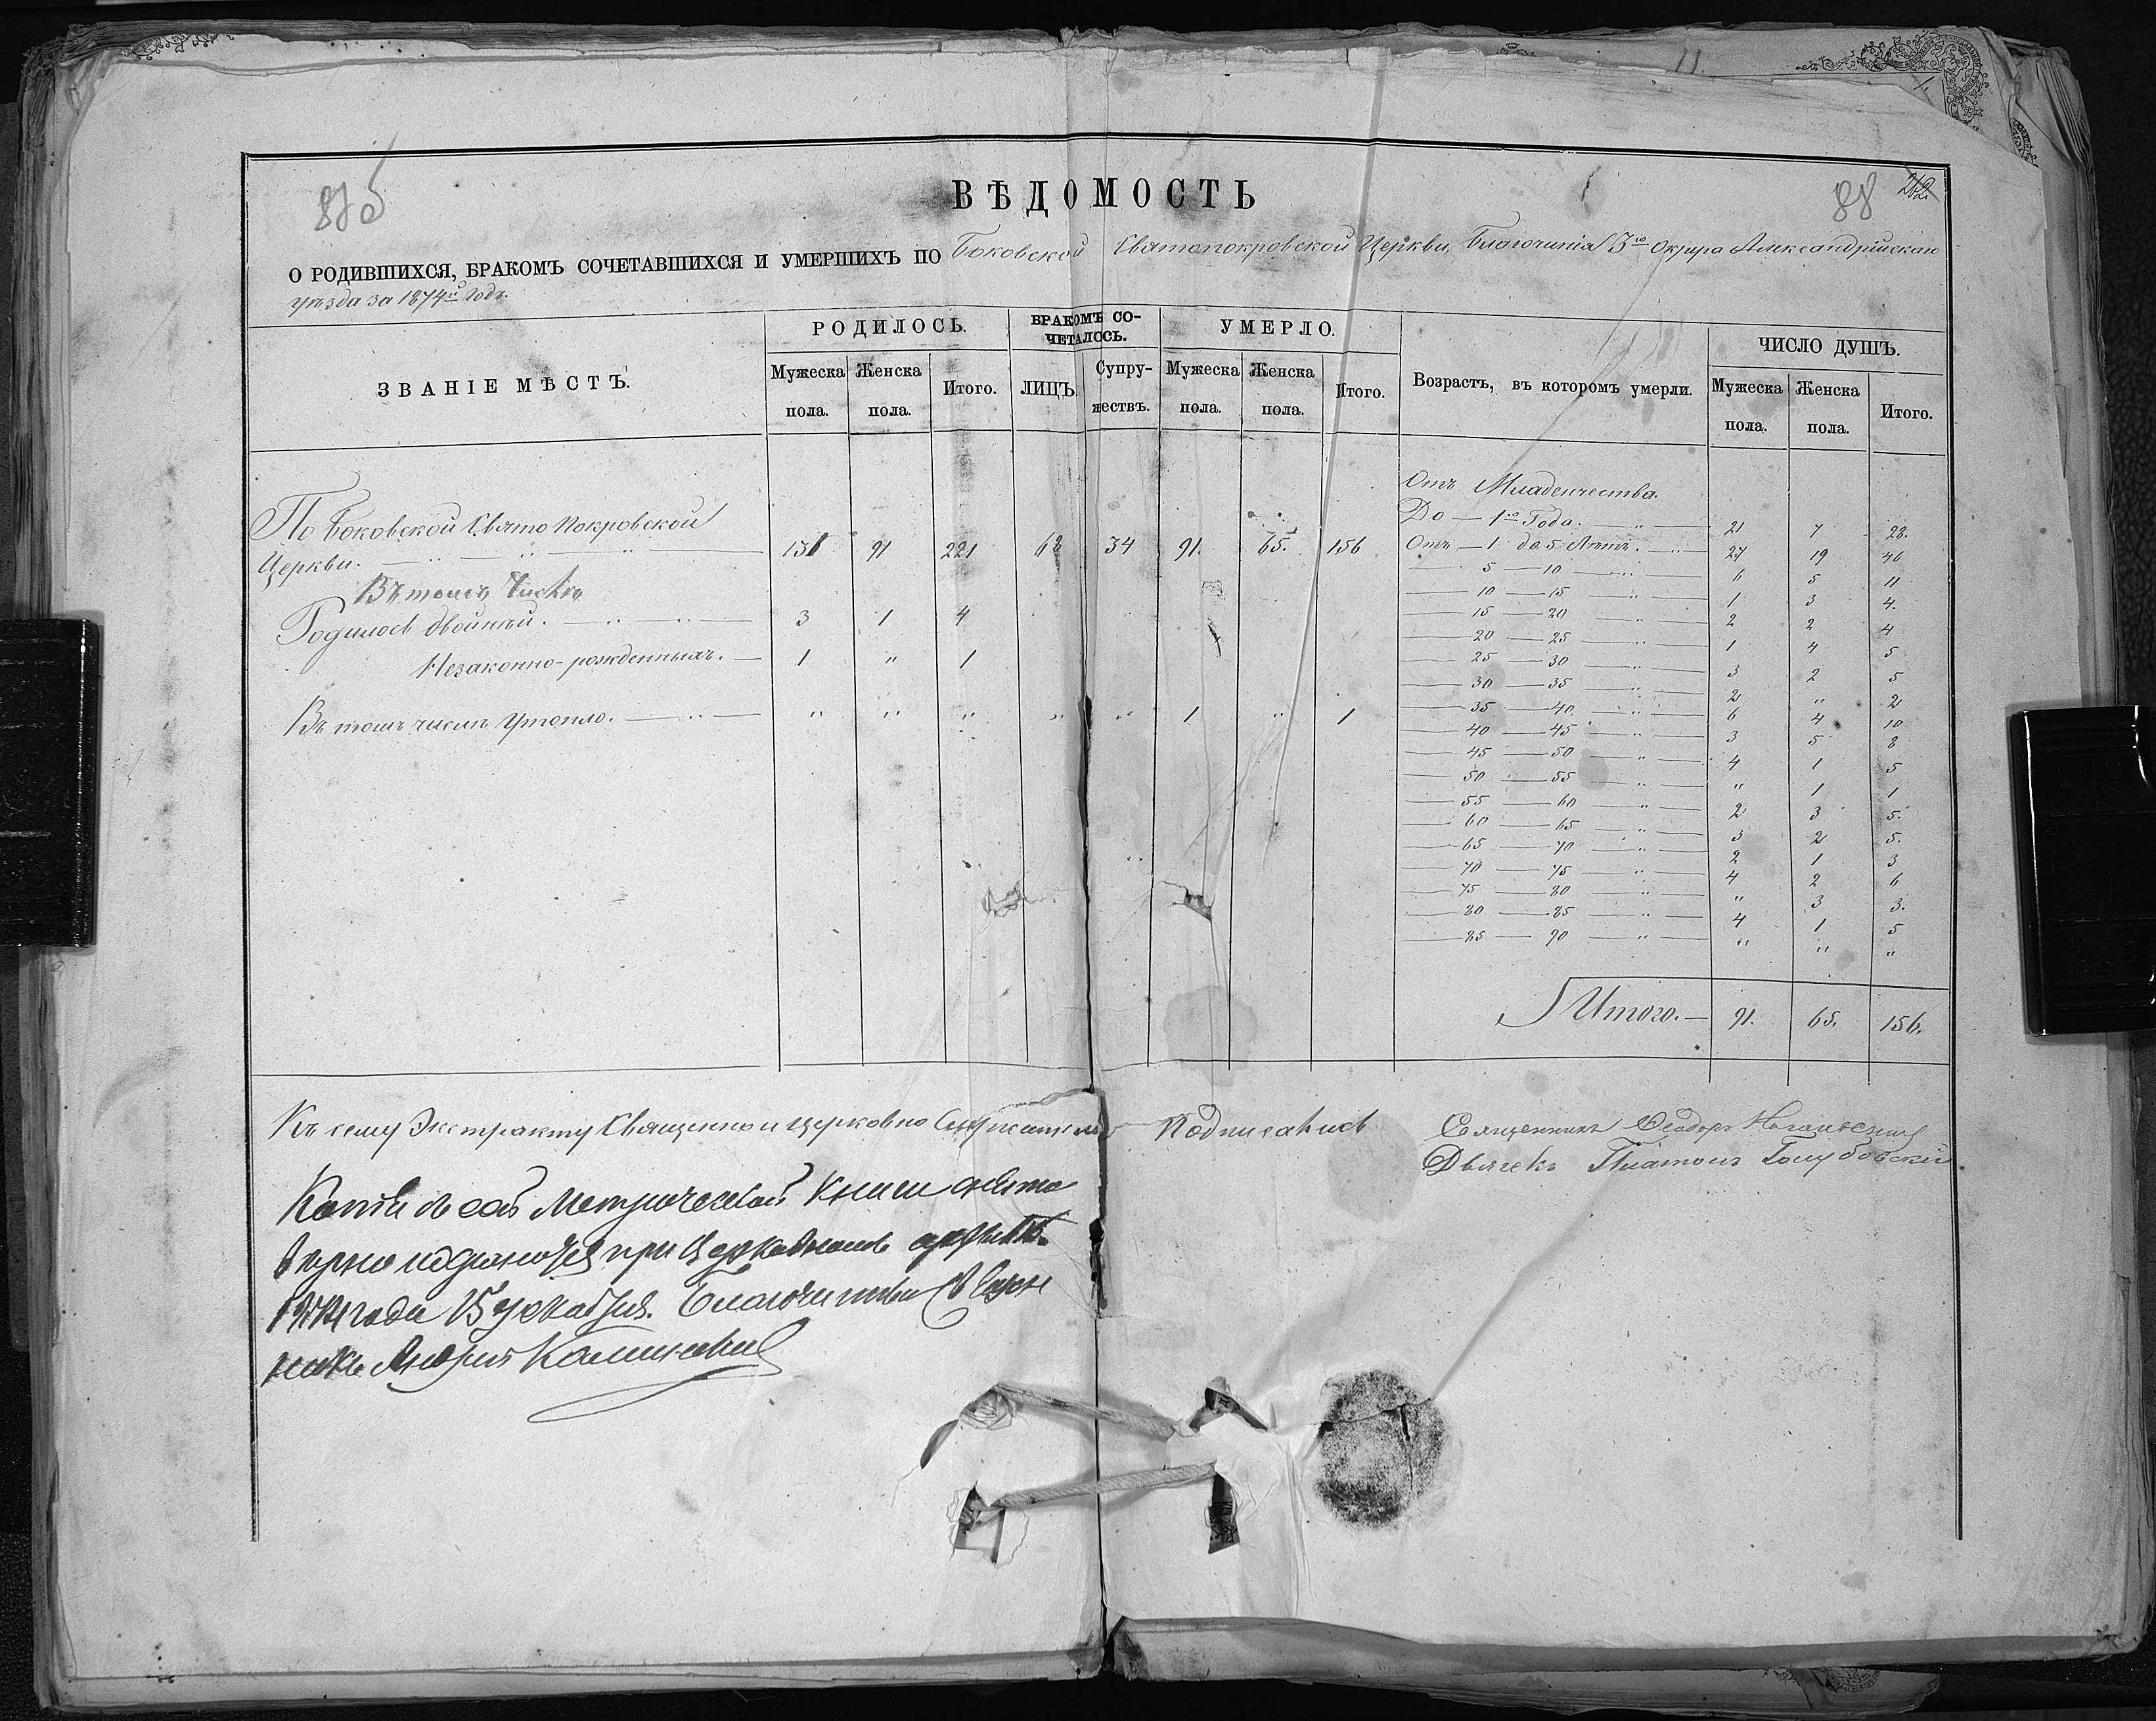 11.
1.
875
88
262
ВѢДОМОСТЬ
О РОДИВШИХСЯ, БРАКОМЪ СОЧЕТАВШИХСЯ И УМЕРШИХЪ ПО Боковской Святопокровской Церкви, Благочинія 3го Округа Александрійскаго
уѣзда за 1874й Годъ.
ЗВАНІЕ МѢСТЪ. РОДИЛОСЬ. БРАКОМЪ СОЧЕТАЛОСЬ. УМЕРЛО. Возрастъ, въ которомъ умерли. ЧИСЛО ДУШЪ.
Мужеска пола. Женска пола. Итого. ЛИЦЪ. Супружествъ. Мужеска пола. Женска пола. Итого. Мужеска пола. Женска пола. Итого.
По Боковской Свято Покровской
Церкви. — 91 221 68 34 91. 65. 156
Въ томъ Числѣ
Родилось двойней. — 3 1 4
Незаконно-рожденныхъ. — 1 " 1
Въ томъ числѣ утопло. — " " " " " 1 " 1
Отъ Младенчества.
До — 1го Года. — 21 7 28.
Отъ — 1 до 5 Лѣтъ. — 27 19 46
— 5 — 10 — " — 6 5 11
— 10 — 15 — " — 1 3 4.
— 15 — 20 — " — 2 2 4
— 20 — 25 — " — 1 4 5
— 25 — 30 — " — 3 2 5
— 30 — 35 — " — 2 " 2
— 35 — 40 — " — 6 4 10
— 40 — 45 — " — 3 5 8
— 45 — 50 — " — 4 1 5
— 50 — 55 — " — " 1 1
— 55 — 60 — " — 2 3 5.
— 60 — 65 — " — 3 2 5.
— 65 — 70 — " — 2 1 3
— 70 — 75 — " — 4 2 6
— 75 — 80 — " — " 3 3.
— 80 — 85 — " — 4 1 5
— 85 — 90 — " — " " "
Итого. — 91. 65. 156.
Къ сему Экстракту Священно и церковно Служители Подписались
Священникъ Ѳеодоръ
Дьячекъ Платонъ Голубовскій
Копія съ сей Метрической Книги снята
вѣрно и хранится при Церковномъ архивѣ.
1874 года 15 декабря. Благочинный Священ
никъ Андрей